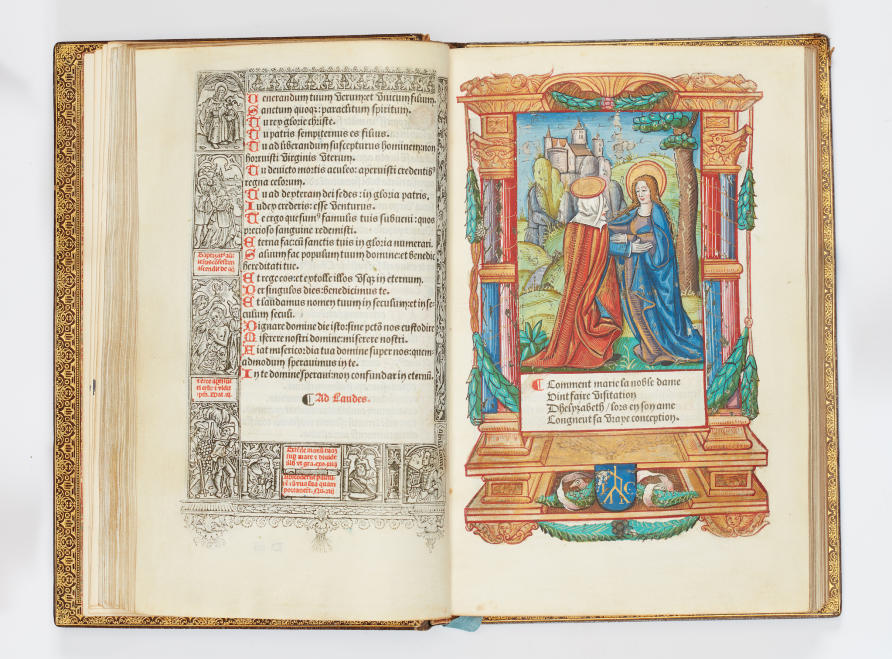 Venerandum tuum verum:et vnicum filium.
Sanctum quoq;: paraclitum spiritum.
Tu rex glorie christe.
Tu patris sempiternus es filius.
Tu ad liberandum suscepturus hominem:non
horruisti virginis vterum.
Tu deuicto mortis aculeo: aperuisti credentibꝰ
regna celorum.
Tu ad dexteram dei sedes: in gloria patris.
Iudex crederis: esse venturus.
Te ergo quesumꝰ famulis tuis subueni: quos
precioso sanguine redemisti.
Eterna fac cū sanctis tuis in gloria numerari.
Saluum fac populum tuum domine:et benedic
hereditati tue.
Et rege eos:et extolle illos vsq; in eternum.
Per singulos dies: benedicimus te.
Et laudamus nomen tuum in seculum:et in se=
culum seculi.
Dignare domine die isto: sine pctō nos custodire
Miserere nostri domine: miserere nostri.
Fiat misericordia tua domine super nos: quem=
admodum sperauimus in te.
In te domine speraui:non confundar in eternū.
¶ Ad Laudes.
¶ Comment marie sa noble dame
Vint faire visitation
Dhelyzabeth / lors en son ame
Congneut sa vraye conception.